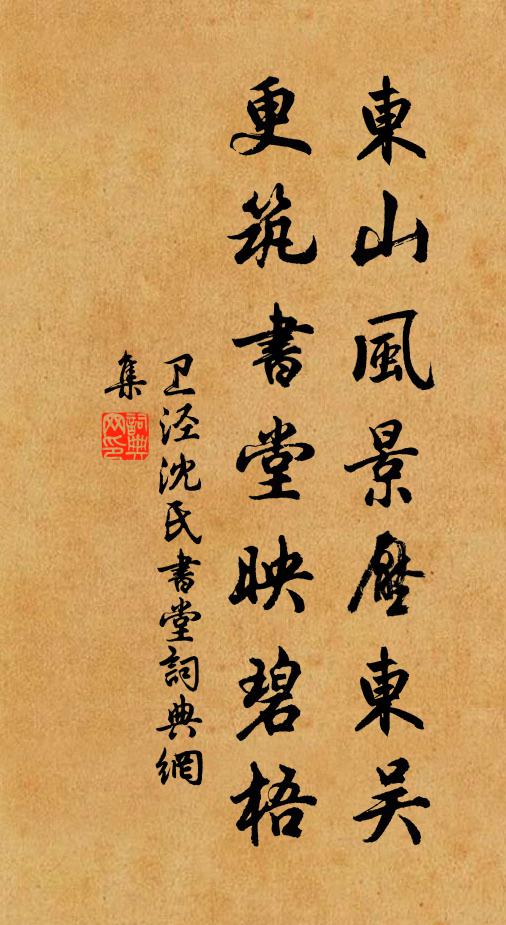 東山風景壓東吴
更筑書堂映碧梧
卫泾沈氏書堂詞典網
集
詞典网印